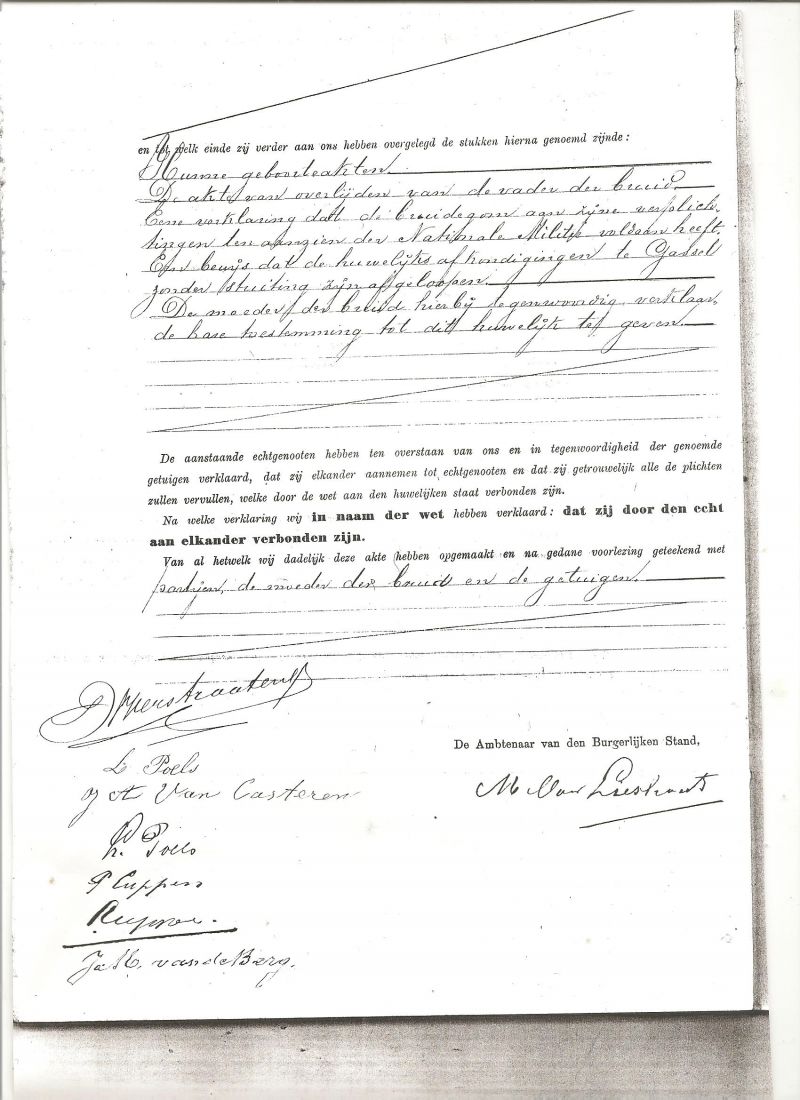 en tot welk einde zij verder aan ons hebben overgelegd de stukken hierna genoemd zijnde :
Hunne geboorteakten.
De akte van overlijden van de vader der bruid.
Eene verklaring dat de bruidegom aan zijne verplich-
tingen ten aanzien der Nationale Militie voldaan heeft.
Een bewijs dat de huwelijksafkondigingen te Gassel
zonder stuiting zijn afgeloopen.
De moeder der bruid hierbij tegenwoordig verklaar,
de hare toestemming tot dit huwelijk te geven.
De aanstaande echtgenooten hebben ten overstaan van ons en in tegenwoordigheid der genoemde
getuigen verklaard, dat zij elkander aannemen tot echtgenooten en dat zij getrouwelijk alle de plichten
zullen vervullen, welke door de wet aan den huwelijken staat verbonden zijn.
Na welke verklaring wij in naam der wet hebben verklaard : dat zij door den echt
aan elkander verbonden zijn.
Van al hetwelk wij dadelijk deze akte hebben opgemaakt en na gedane voorlezing geteekend met
partijen, de moeder der bruid en de getuigen.
De Ambtenaar van den Burgerlijken Stand,
Poels
M Van
A Van Casteren
h. Poels
P Cuppen
van de Berg.